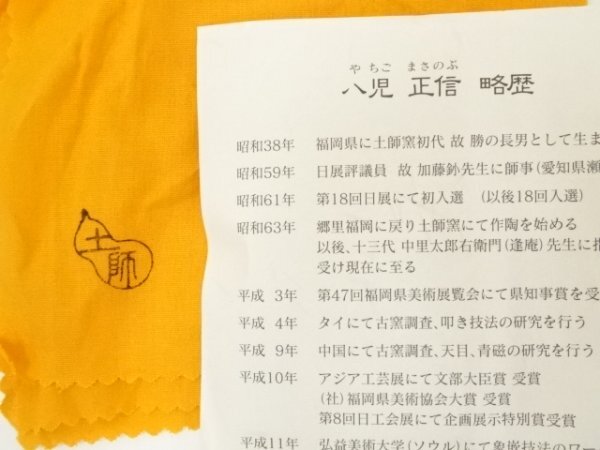 や ちご まさのぶ
八児 正信 略歴
昭和38年 福岡県に土師窯初代 故 勝の長男として生ま
昭和59年 日展評議員 故 加藤釥先生に師事(愛知県瀬
昭和61年 第18回日展にて初入選 (以後18回入選)
昭和63年 郷里福岡に戻り土師窯にて作陶を始める
以後、十三代 中里太郎右衛門(逢庵)先生に指
受け現在に至る
平成 3年 第47回福岡県美術展覧会にて県知事賞を受
平成 4年 タイにて古窯調査、叩き技法の研究を行う
平成 9年 中国にて窯調査、天目、青磁の研究を行う
平成10年 アジア工芸展にて文部大臣賞 受賞
(社)福岡県美術協会大賞 受賞
第8回日工会展にて企画展示特別賞受賞
平成11年 弘益美術大学(ソウル)にて象嵌技法のワー
土師